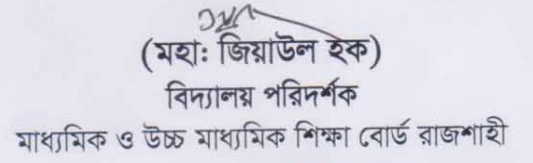 (মহা: জিয়াউল হক)
বিদ্যালয় পরিদর্শক
মাধ্যমিক ও উচ্চ মাধ্যমিক শিক্ষা বোর্ড রাজশাহী